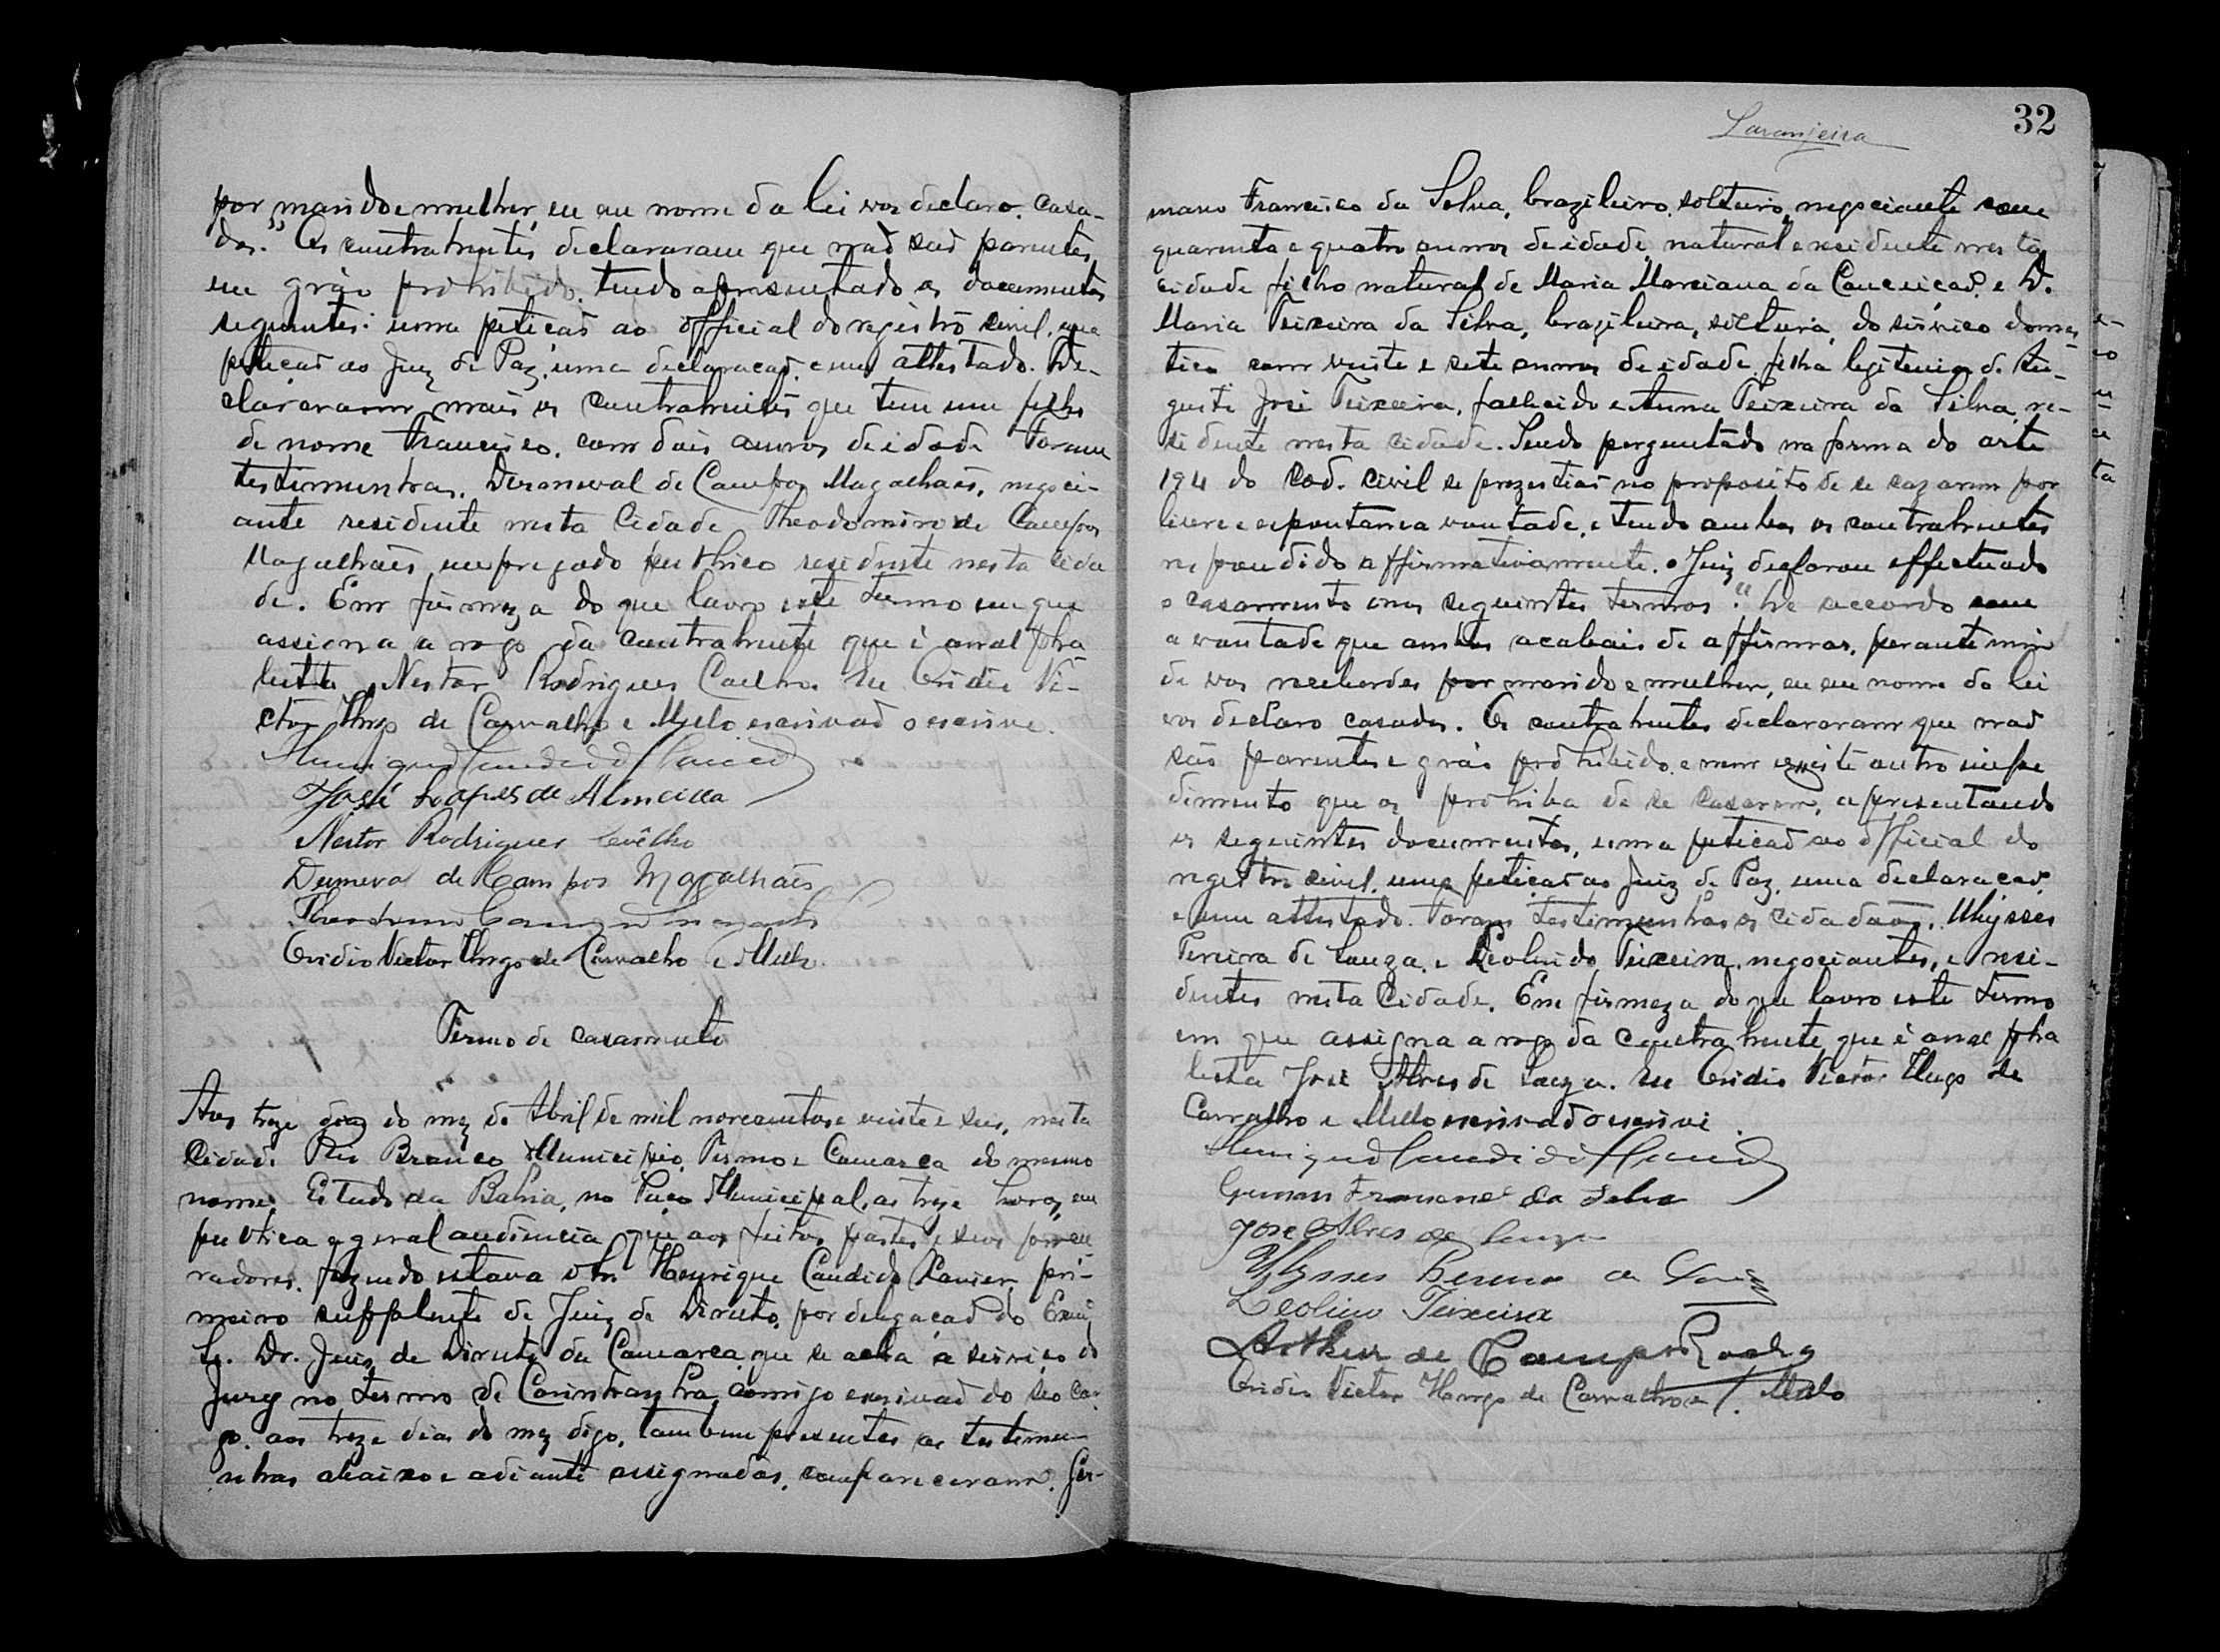 por marido e mulher, eu em nome da lei vos declaro. casa-
dos." Os contrahentes declararam que não são parentes
em gráo prohibido. tendo apresentado os documentos
seguintes: uma petição ao official do registro civil, uma
petição ao Juiz de Paz, uma declaração e um attestado. De-
clararam mais os contrahentes que tem um filho
de nome Francisco, com dois annos de idade Foram
testimunhas. Dermeval de Campos Magalhães, negoci-
ante residente nesta Cidade Theodomiro de Campos
Magalhães empregado publico residente nesta Cida
de. Em firmeza do que lavro este termo em que
assigna a rogo da contrahente que é analpha
betta Nestor Rodrigues Coelho. Eu Ovidio Vi-
ctor Hugo de Carvalho e Mello escrivão o escrivi.
Henrique Candido Xavier
José Lopes de Almeida
Nestor Rodrigues Coêlho
Dermeval de Campos Magalhães
Theodomiro Campos Magalhães
Ovidio Victor Hugo de Carvalho e Mello.
Termo de casamento
Aos treze dias do mez de Abril de mil novecentos e vinte e seis, nesta
Cidade Rio Branco Municipio, Termo e Comarca do mesmo
nome Estado da Bahia, no Paço Municipal, as treze horas, em
publica e geral audiencia que aos feitos, partes e seus procu
radores. fazendo estava o Snr Henrique Candido Xavier, pri-
meiro supplente de Juiz de Direito, por delegação do Exmo
Sr. Dr. Juiz de Direito da Comarca que se acha a serviço do
Jury no termo de Carinhanha, comigo escrivão do seo car
go. aos treze dias do mez digo, tambem presentes as testemu-
nhas abaixo e adiante assignadas, compareceram. Ger-
32
Laranjeira
mano Francisco da Silva, brazileiro, solteiro, negociante com
quarenta e quatro annos de idade, natural e residente nesta
cidade filho natural de Maria Marciana da Conceição e D.
Maria Teixeira da Silva, brazileira, solteira, do serviço domes
tico com vinte e sete annos de idade, filha legitima de Au-
gusto José Teixeira, fallecido e Anna Teixeira da Silva, re-
sidente nesta cidade. Sendo perguntado na forma do arte
194 do Cod. civil se prezestiaõ no proposito de se cazarem por
livre e espontanea vontade, e tendo ambos os contrahentes
respondido affirmativamente. o Juiz declarou effectuado
o casamento nos seguintes termos: "De accordo com
a vontade que ambos acabais de affirmar, perante mim
de vos receberdes por marido e mulher, eu em nome da lei
vos declaro casados. Os contrahentes declararam que não
são parentes e gráo prohibido e nem existe outro impe
dimento que os prohiba de se casarem, apresentando
os seguintes documentos, uma petição ao official do
registro civil. uma petição ao Juiz de Paz, uma declaração
e um attestado. Foram testemunhas os cidadãos, Ulysses
Pereira de Souza. e Leolindo Teixeira, negociantes, e resi-
dentes nesta Cidade. Em firmeza do que lavro este termo
em que assigna a rogo da contrahente que é analpha
beta José Alves de Souza. Eu Ovidio Victor Hugo de
Carvalho e Mello escrivão o escrivi
Henrique Candido Xavier
Germano Francisco da Silva
Jose Alves de Souza
Ulysses Pereira de Souza
Leolino Teixeira
Arthur de Campos Rocha
Ovidio Victor Hugo de Carvalho e Mello